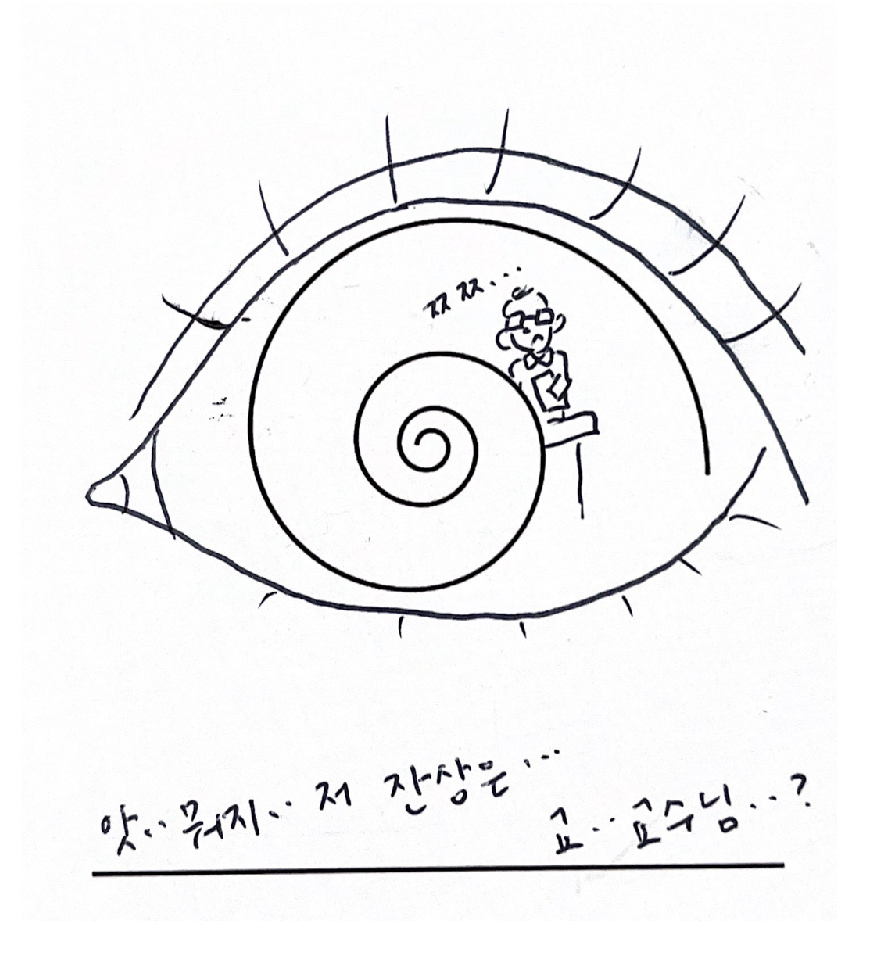 쯔쯔...
앗.. 뭐지.. 저 잔상은...
교.. 교수님...?